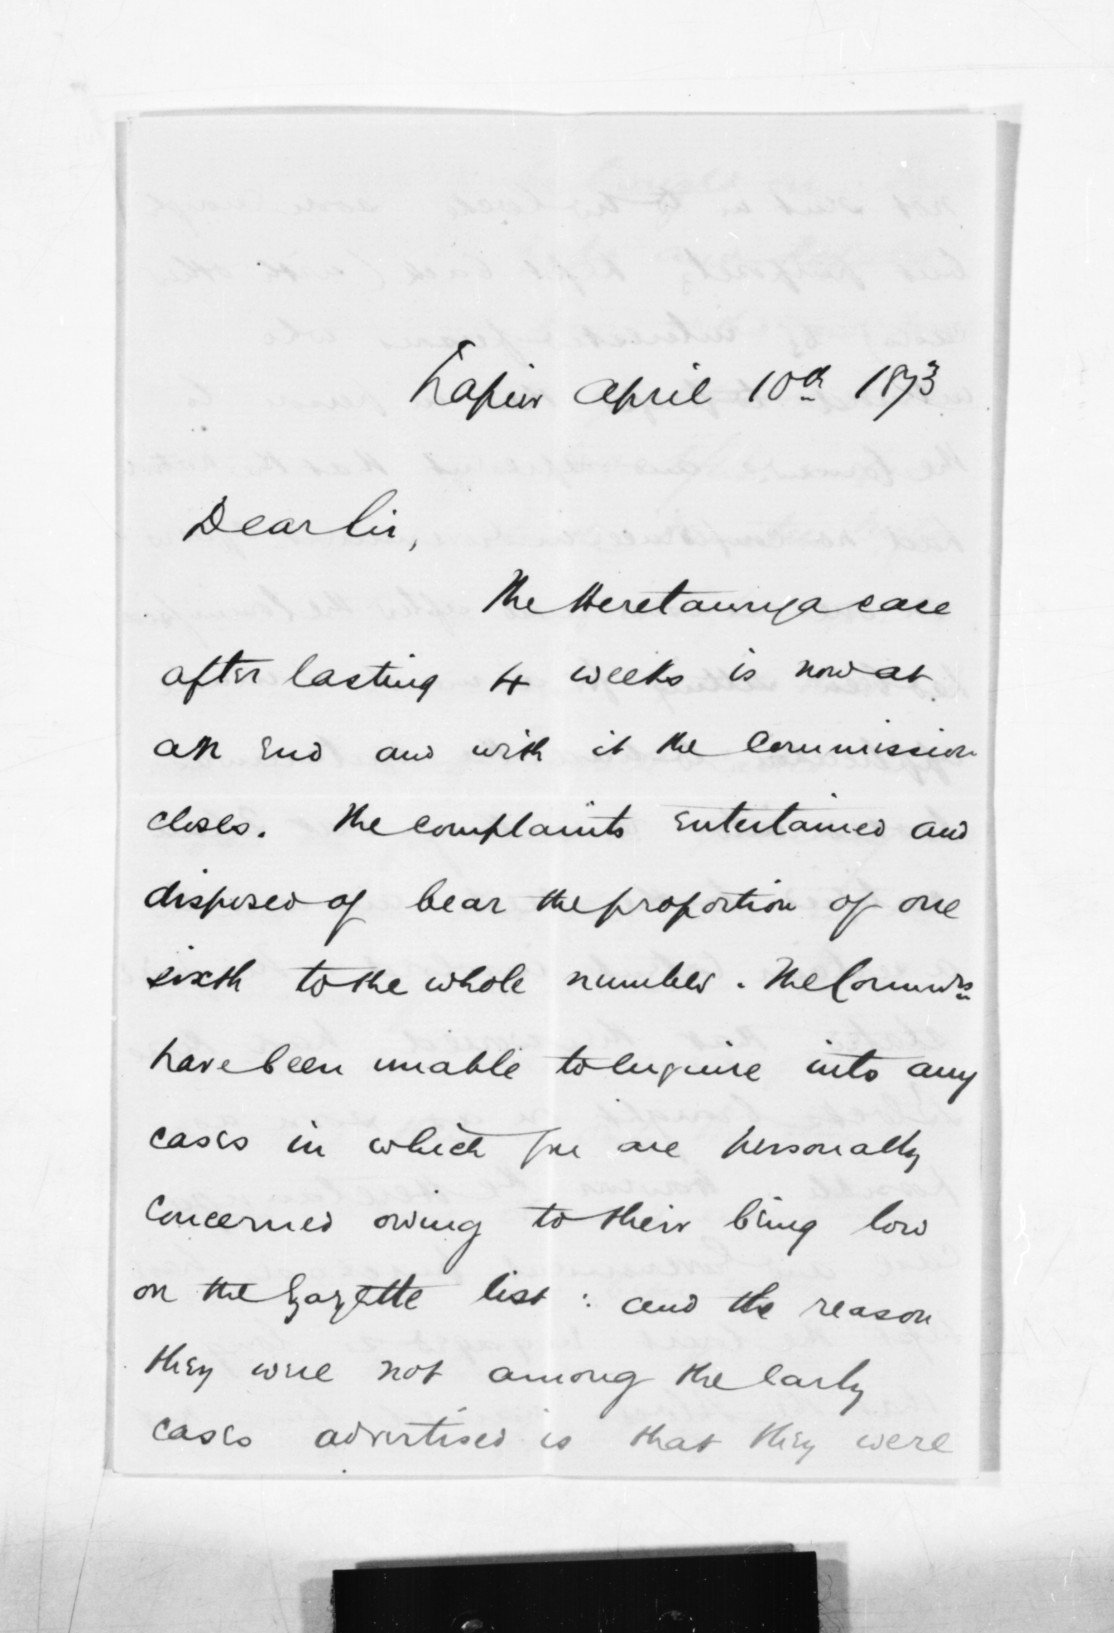 Napier April 10th 1873
Dear Sir,
The Heretaunga case
after lasting 4 weeks is now at
an end and with it the Commission
closes. The complaints entertained and
disposed of bear the proportion of one
sixth to the whole number. The Commrs
have been unable to enquire into any
cases in which you are personally
concerned owing to their being low
on the Gazette list : and the reason
they were not among the early
cases advertised is that they were